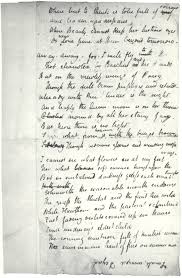 Where but to think is to be full of sorrow
And leaden eyed despairs
Where Beauty cannot keep her lustrous eyes
Or new Love pine at them beyond tomorrow
Away away for I will fly to thee
Not charioted by Bacchus and his Pards
But on the viewless wings of Poesy
Though the dull brain perplexes and retards
Already with thee! tender is the night
And haply the Queen moon is on her throne
Cluster'd around by all her starry fays
But here there is no light
Save what from heaven is with the breezes blown
Through verdurous glooms and winding mossy ways
I cannot see what flowers are at my feet
Nor what soft incense hangs upon the boughs
But in embalmed darkness guess each sweet
Wherewith the seasonable month endows
The grass the thicket and the fruit tree wild
White Hawthorn and the pastoral eglantine
Fast fading violets cover'd up in leaves
And eldest child
The coming muskrose full of dewy wine
The murmurous haunt of flies on summer eves